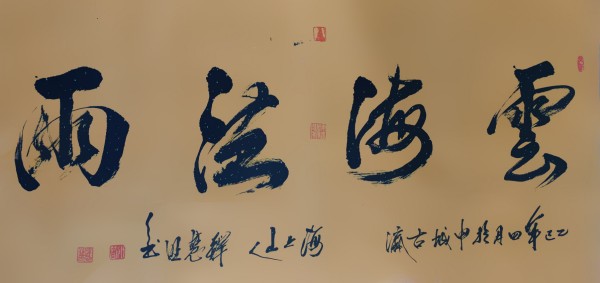 雲海法雨
乙巳年四月於申城古瀛
海上山人 釋慧